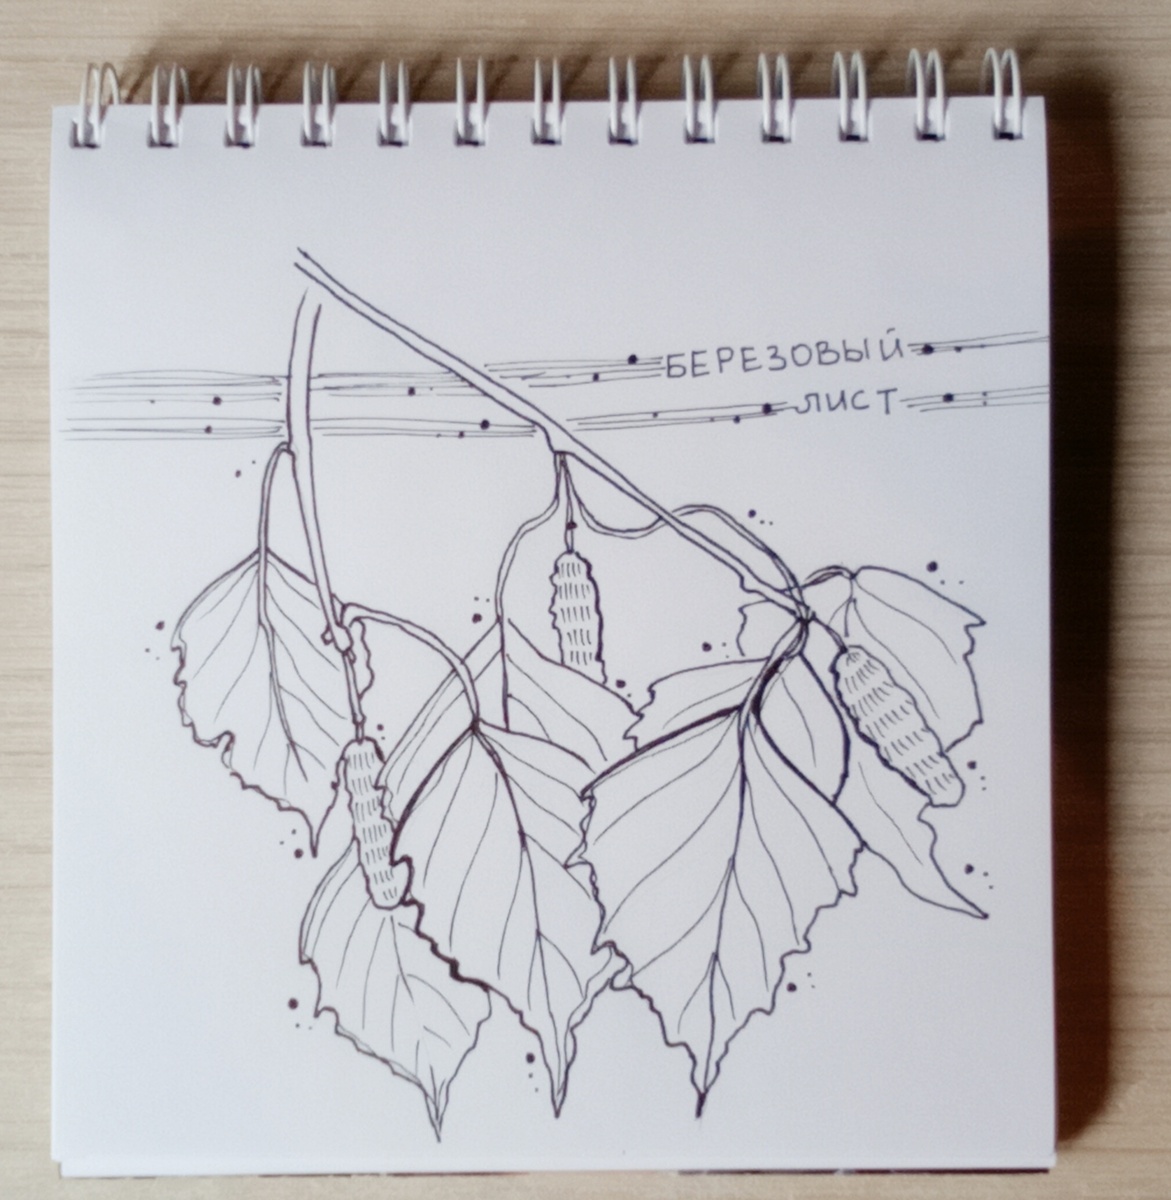 БЕРЕЗОВЫЙ
ЛИСТ